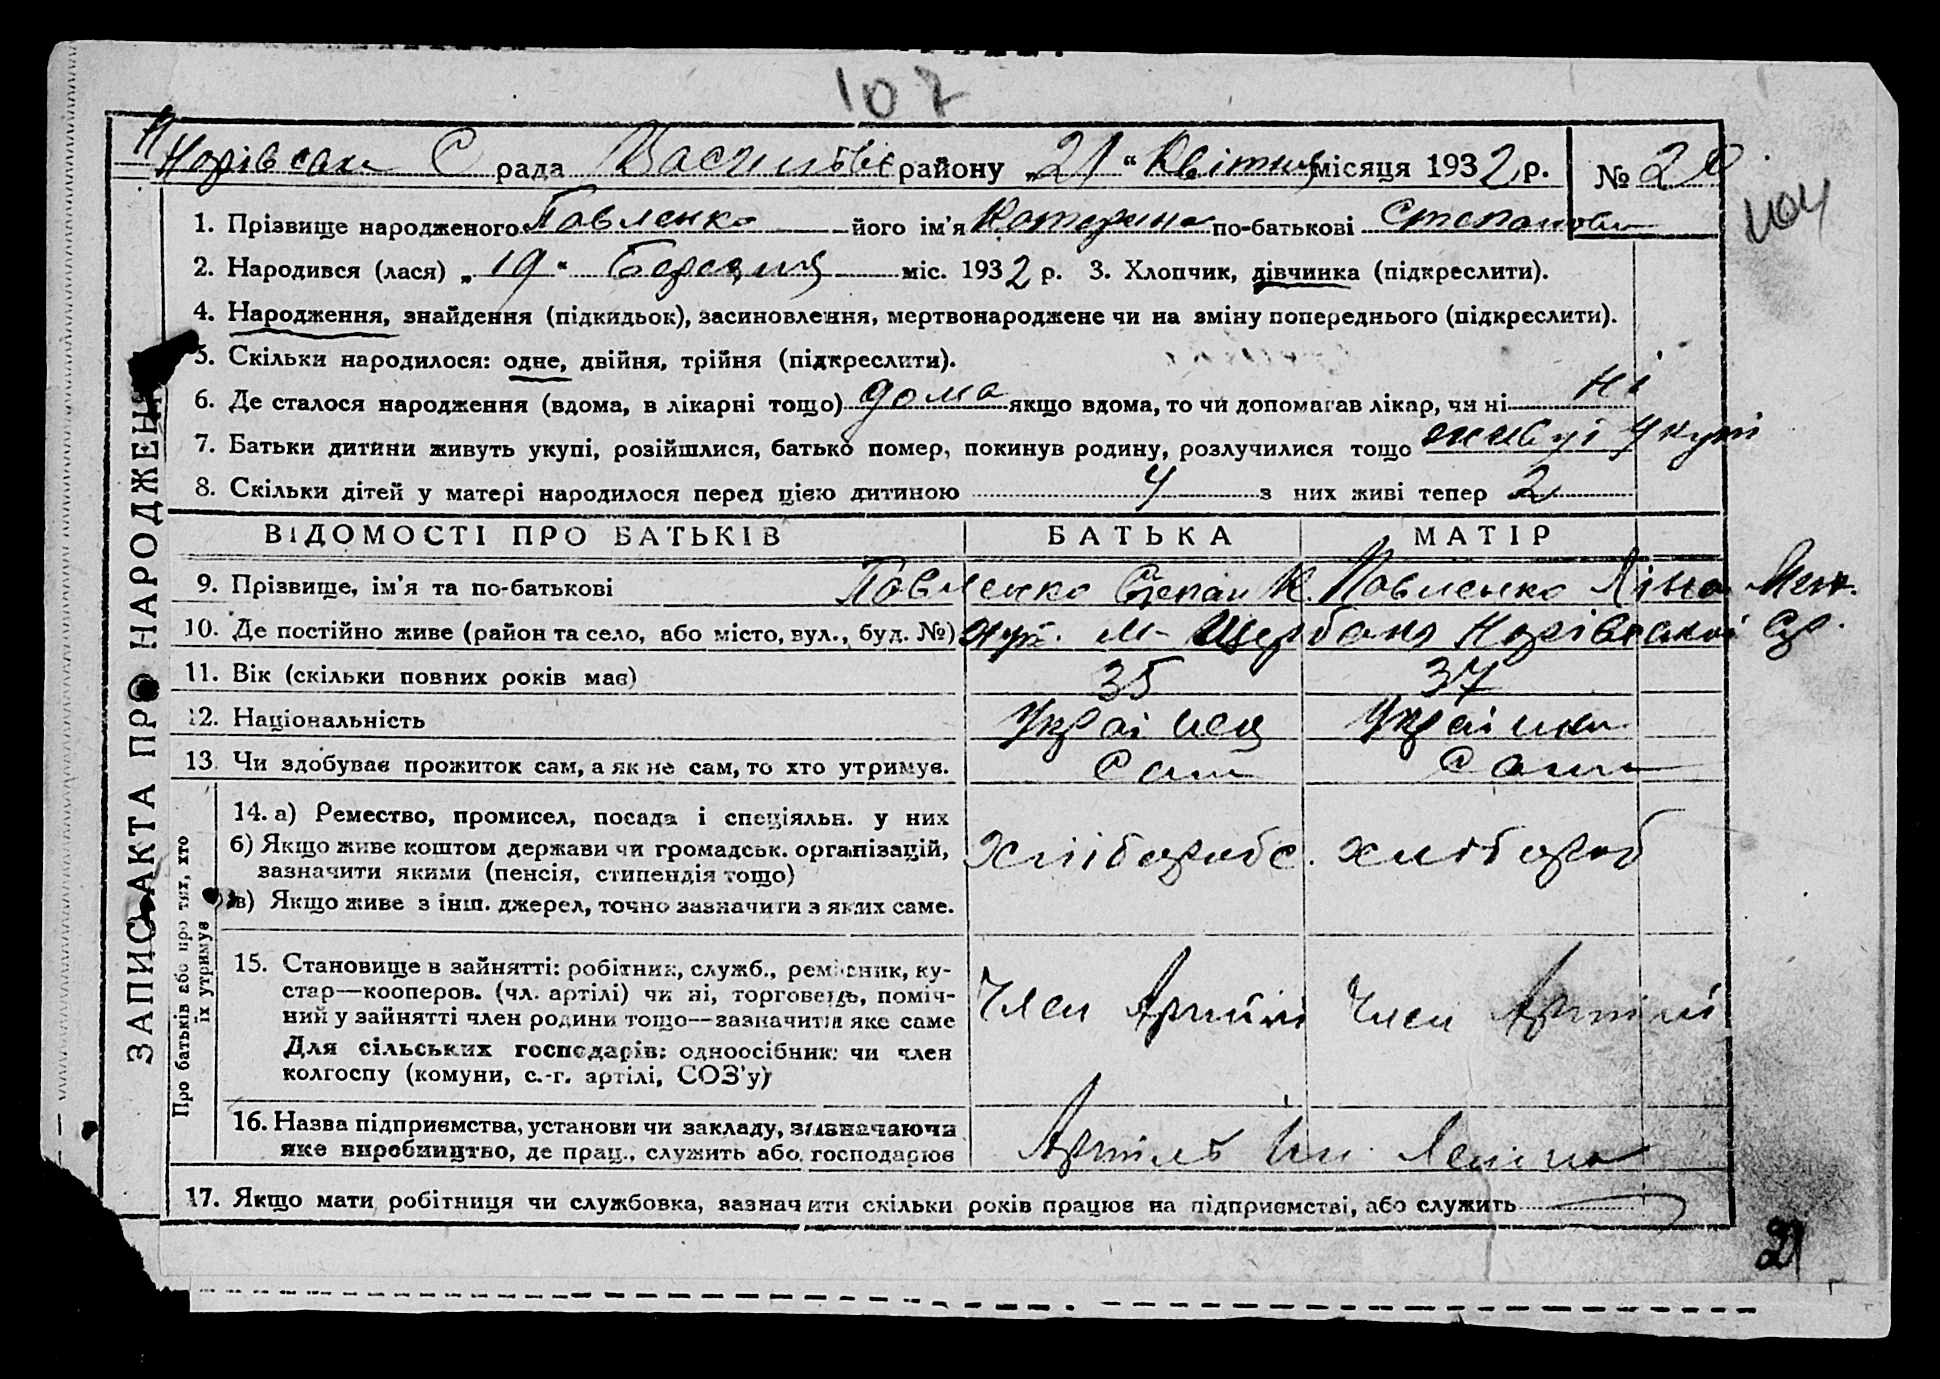 107
Норівська С рада району „21“ Квітня місяця 1932 р. № 20
104
1. Прізвище народженого Павленко його ім'я Катерина по-батькові Степановн
2. Народився (лася) „19“ Березня міс. 1932 р. 3. Хлопчик, дівчинка (підкреслити).
4. Народження, знайдення (підкидьок), засиновлення, мертвонароджене чи на зміну попереднього (підкреслити).
5. Скільки народилося: одне, двійня, трійня (підкреслити).
6. Де сталося народження (вдома, в лікарні тощо) дома якщо вдома, то чи допомагав лікар, чи ні ні
7. Батьки дитини живуть укупі, розійшлися, батько помер, покинув родину, розлучилися тощо живуть укупі
8. Скільки дітей у матері народилося перед цією дитиною 4 з них живі тепер 2
ЗАПИС АКТА ПРО НАРОДЖЕННЯ
ВІДОМОСТІ ПРО БАТЬКІВ БАТЬКА МАТІР
9. Прізвище, ім'я та по-батькові Павленко Степан К. Павленко
10. Де постійно живе (район та село, або місто, вул., буд. №) хут. М- Щербани Норівської С/р.
11. Вік (скільки повних років має) 35 37
12. Національність Українец Українка
13. Чи здобуває прожиток сам, а як не сам, то хто утримує. Сам Сама
Про батьків або про тих, хто їх утримує
14. а) Ремество, промисел, посада і спеціяльн. у них
б) Якщо живе коштом держави чи громадськ. організацій, зазначити якими (пенсія, стипендія тощо) хлібороб. хлібороб
в) Якщо живе з інш. джерел, точно зазначити з яких саме.
15. Становище в зайнятті: робітник, служб., ремісник, ку-
стар—кооперов. (чл. артілі) чи ні, торговець, поміч-
ний у зайнятті член родини тощо—зазначити яке саме Член Артілі Член Артілі
Для сільських господарів: одноосібник чи член
колгоспу (комуни, с.-г. артілі, СОЗ'у)
16. Назва підприємства, установи чи закладу, зазначаючи
яке виробництво, де прац., служить або господарює Артіль Ім. Леніна
17. Якщо мати робітниця чи службовка, зазначити скільки років працює на підприємстві, або служить
21